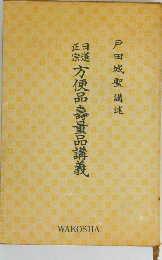 戸田城聖 講述
日蓮
正宗
方便品寿量品講義
WAKOSHA